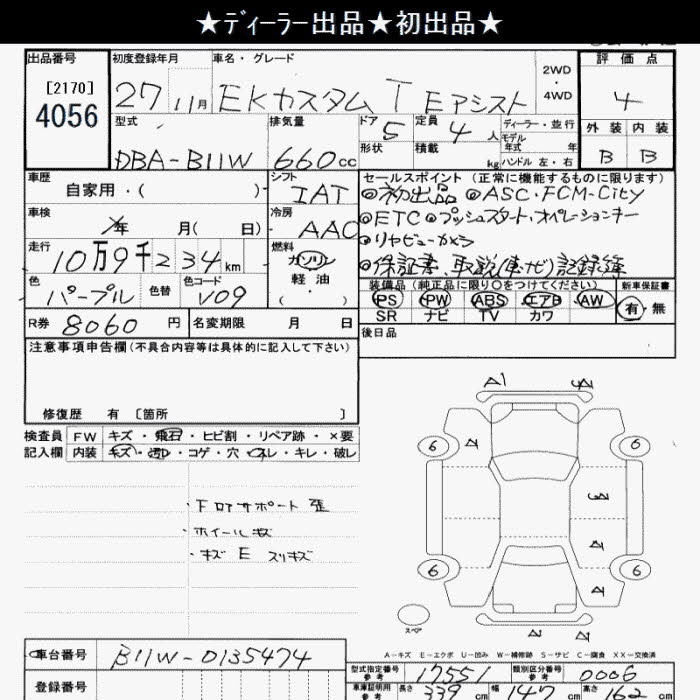 ★ディーラー出品★初出品★
出品番号
[2170]
4056
初度登録年月
27 11月
車名・グレード
EKカスタム T Eアシスト
2WD
・
4WD
評価点
4
外装 内装
B B
型式
DBA-B11W
排気量
660cc
ドア
5
定員
4人
ディーラー・並行
モデル
年式 年
形状
積載
kg
ハンドル 左・右
車歴
自家用・( )
シフト
IAT
セールスポイント(正常に機能するものに限ります)
◎初出品 ◎ASC・FCM-City
◎ETC ◎プッシュスタート・オペレーションキー
◎リヤビューカメラ
◎保証書、取説(車ナビ)記録簿
車検
年 月( 日)
冷房
AAC
走行
10万9千234km
燃料
ガソリン
軽油
( )
色
パープル
色替
色コード
V09
装備品(純正品に限り○をつけてください)
PS PW ABS エアB AW
SR ナビ TV カワ
新車保証書
有・無
R券 8060円
名変期限 月 日
後日品
注意事項申告欄(不具合内容等は具体的に記入して下さい)
修復歴 有 〔箇所 〕
検査員
記入欄
FW キズ・飛石・ヒビ割・リペア跡・×要
内装 キズ・汚レ・コゲ・穴・スレ・キレ・破レ
・ホイールキズ
・キズ E スリキズ
A1
6 6
6 6
スペア
A-キズ E-エクボ U-凹み W-補修跡 S-サビ C-腐食 XX-交換済
車台番号
B11W-0135474
登録番号
型式指定番号
参考
17551
類別区分番号
参考
0006
車庫証明用
参考
長さ 339cm 幅 147cm 高さ 162cm